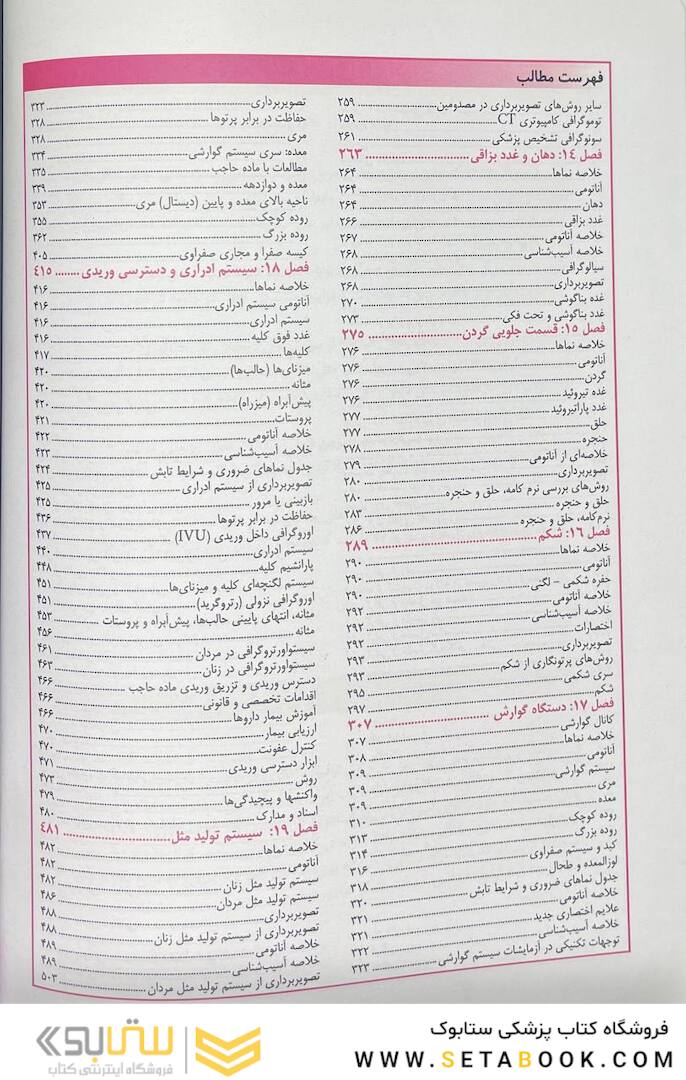 فهرست مطالب
سایر روش‌های تصویربرداری در مصدومین ۲۵۹
توموگرافی کامپیوتری CT ۲۵۹
سونوگرافی تشخیص پزشکی ۲۶۱
فصل ۱۴: دهان و غدد بزاقی ۲۶۳
خلاصه نماها ۲۶۴
آناتومی ۲۶۴
دهان ۲۶۴
غدد بزاقی ۲۶۶
خلاصه آناتومی ۲۶۷
خلاصه آسیب‌شناسی ۲۶۸
سیالوگرافی ۲۶۸
تصویربرداری ۲۶۸
غده بناگوشی ۲۷۰
غدد بناگوشی و تحت فکی ۲۷۳
فصل ۱۵: قسمت جلویی گردن ۲۷۵
خلاصه نماها ۲۷۶
آناتومی ۲۷۶
گردن ۲۷۶
غده تیروئید ۲۷۶
غدد پاراتیروئید ۲۷۷
حلق ۲۷۷
حنجره ۲۷۸
خلاصه‌ای از آناتومی ۲۷۹
تصویربرداری ۲۸۰
روش‌های بررسی نرم کامه، حلق و حنجره ۲۸۰
حلق و حنجره ۲۸۳
نرم‌کامه، حلق و حنجره ۲۸۶
فصل ۱۶: شکم ۲۸۹
خلاصه نماها ۲۹۰
آناتومی ۲۹۰
حفره شکمی - لگنی ۲۹۰
خلاصه آناتومی ۲۹۲
خلاصه آسیب‌شناسی ۲۹۲
اختصارات ۲۹۲
تصویربرداری ۲۹۳
روش‌های پرتونگاری از شکم ۲۹۳
سری شکمی ۲۹۵
شکم ۲۹۷
فصل ۱۷: دستگاه گوارش ۳۰۷
کانال گوارشی ۳۰۷
خلاصه نماها ۳۰۸
آناتومی ۳۰۹
سیستم گوارشی ۳۰۹
مری ۳۰۹
معده ۳۱۰
روده کوچک ۳۱۳
روده بزرگ ۳۱۴
کبد و سیستم صفراوی ۳۱۶
لوزالمعده و طحال ۳۱۸
جدول نماهای ضروری و شرایط تابش ۳۲۰
خلاصه آناتومی ۳۲۱
علایم اختصاری جدید ۳۲۱
خلاصه آسیب‌شناسی ۳۲۲
توجهات تکنیکی در آزمایشات سیستم گوارشی ۳۲۳
تصویربرداری ۳۲۳
حفاظت در برابر پرتوها ۳۲۸
مری ۳۲۸
معده: سری سیستم گوارشی ۳۳۴
مطالعات با ماده حاجب ۳۳۵
معده و دوازدهه ۳۳۹
ناحیه بالای معده و پایین (دیستال) مری ۳۵۳
روده کوچک ۳۵۵
روده بزرگ ۳۶۲
کیسه صفرا و مجاری صفراوی ۴۰۵
فصل ۱۸: سیستم ادراری و دسترسی وریدی ۴۱۵
خلاصه نماها ۴۱۶
آناتومی سیستم ادراری ۴۱۶
سیستم ادراری ۴۱۶
غدد فوق کلیه ۴۱۶
کلیه‌ها ۴۱۷
میزنای‌ها (حالب‌ها) ۴۲۰
مثانه ۴۲۰
پیش‌آبراه (میزراه) ۴۲۰
پروستات ۴۲۱
خلاصه آناتومی ۴۲۲
خلاصه آسیب‌شناسی ۴۲۳
جدول نماهای ضروری و شرایط تابش ۴۲۴
تصویربرداری از سیستم ادراری ۴۲۵
بازبینی یا مرور ۴۲۵
حفاظت در برابر پرتوها ۴۳۶
اوروگرافی داخل وریدی (IVU) ۴۳۷
سیستم ادراری ۴۴۰
پارانشیم کلیه ۴۴۸
سیستم لگنچه‌ای کلیه و میزنای‌ها ۴۵۱
اوروگرافی نزولی (رتروگرید) ۴۵۱
مثانه، انتهای پایینی حالب‌ها، پیش‌آبراه و پروستات ۴۵۳
مثانه ۴۵۶
سیستواورتروگرافی در مردان ۴۶۱
سیستواورتروگرافی در زنان ۴۶۳
دسترس وریدی و تزریق وریدی ماده حاجب ۴۶۶
اقدامات تخصصی و قانونی ۴۶۶
آموزش بیمار داروها ۴۶۶
ارزیابی بیمار ۴۷۰
کنترل عفونت ۴۷۰
ابزار دسترسی وریدی ۴۷۱
روش ۴۷۳
واکنشها و پیچیدگی‌ها ۴۷۹
اسناد و مدارک ۴۸۰
فصل ۱۹: سیستم تولید مثل ۴۸۱
خلاصه نماها ۴۸۲
آناتومی ۴۸۲
سیستم تولید مثل زنان ۴۸۲
سیستم تولید مثل مردان ۴۸۶
تصویربرداری ۴۸۸
تصویربرداری از سیستم تولید مثل زنان ۴۸۸
خلاصه آناتومی ۴۸۹
خلاصه آسیب‌شناسی ۴۸۹
تصویربرداری از سیستم تولید مثل مردان ۵۰۳
فروشگاه کتاب پزشکی ستابوک
WWW.SETABOOK.COM
ستابوک
فروشگاه اینترنتی کتاب